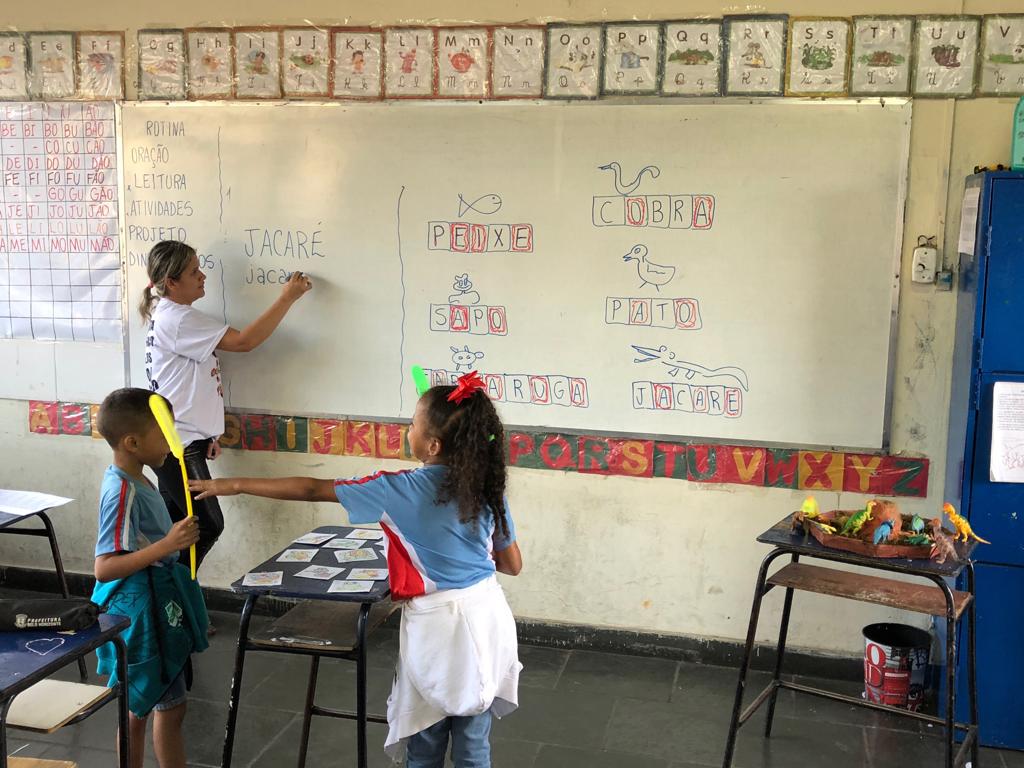 Ee Ff Gg Hh Ii Jj Kk Ll Mm Nn Oo Pp Qq Rr Ss Tt Uu V
BE BI BO BU BÃO
CO CU CÃO
DE DI DO DU DÃO
FE FI FO FU FÃO
- - GO GU GÃO
JE JI JO JU JÃO
LE LI LO LU LÃO
ME MI MO MU MÃO
ROTINA
ORAÇÃO
LEITURA
ATIVIDADES
PROJETO
JACARÉ
jacar
PEIXE
SAPO
COBRA
PATO
JACARÉ
A B G H I J K L P Q R S T U V W X Y Z
PREFEITURA
BELO HORIZONTE